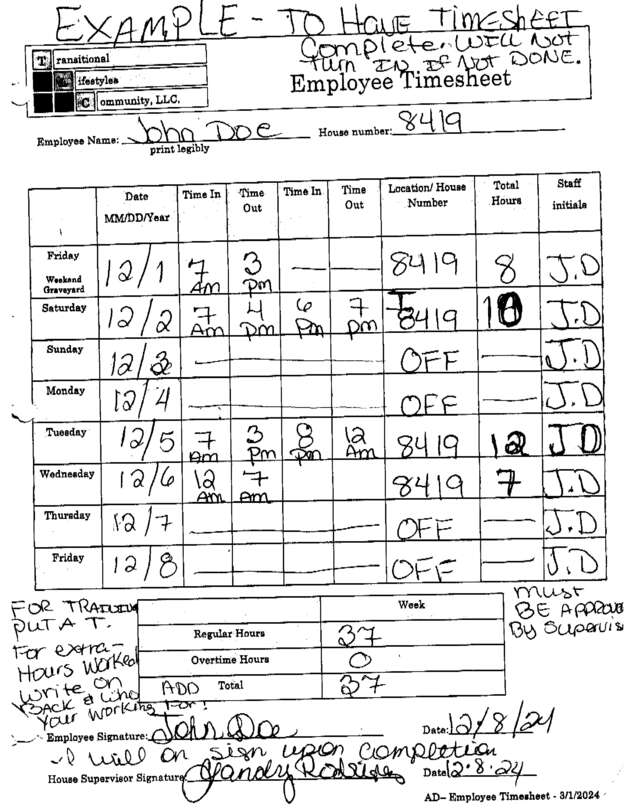 EXAMPLE - TO HAVE TIMESHEET
Complete. WILL NOT
Turn IN IF NOT DONE.
Transitional
Lifestyles
Community, LLC.
Employee Timesheet
Employee Name: John Doe House number: 8419
print legibly
Date MM/DD/Year Time In Time Out Time In Time Out Location/ House Number Total Hours Staff initials
Friday Weekend Graveyard 12/1 7 Am 3 pm — — 8419 8 J.D
Saturday 12/2 7 Am 4 pm 6 pm 7 pm T 8419 10 J.D
Sunday 12/3 — OFF — J.D
Monday 12/4 — OFF — J.D
Tuesday 12/5 7 Am 3 pm 8 pm 12 Am 8419 12 JD
Wednesday 12/6 12 Am 7 Am 8419 7 J.D
Thursday 12/7 — OFF — J.D
Friday 12/8 — OFF — J.D
FOR TRAINING
PUT A T.
For extra-
Hours Worked
write on
BACK & Who
Your Working For!
Must
BE APPROVE
By Supervis
Week
Regular Hours 37
Overtime Hours 0
ADD Total 37
Employee Signature: John Doe Date: 12/8/24
-I will on sign upon completion
House Supervisor Signature Date 12.8.24
AD– Employee Timesheet - 3/1/2024